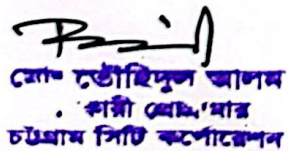 মোঃ তৌহিদুল আলম
কারী
চট্টগ্রাম সিটি কর্পোরেশন